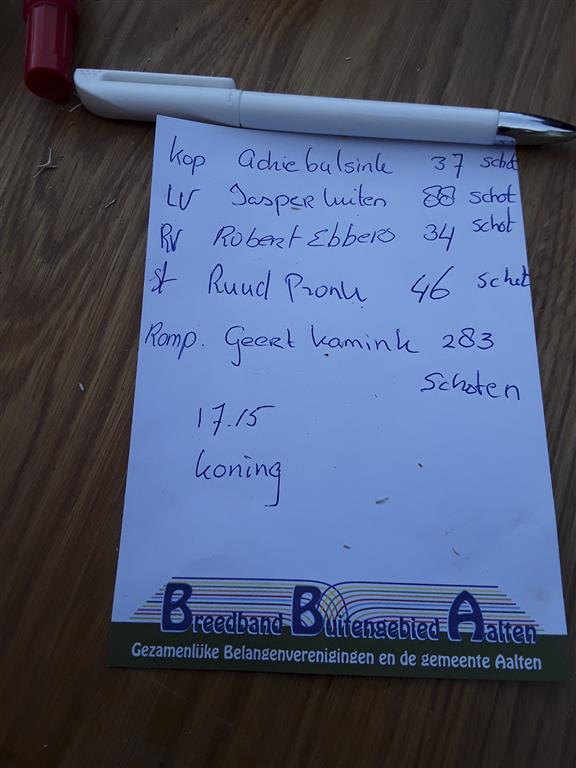 kop Adrie bulsink 37 schot
LV Jasper luiten 88 schot
RV Robert Ebbers 34 schot
st Ruud Pronk 46 schot
Romp. Geert kamink 283
schoten
17.15
koning
Breedband Buitengebied Aalten
Gezamenlijke Belangenverenigingen en de gemeente Aalten